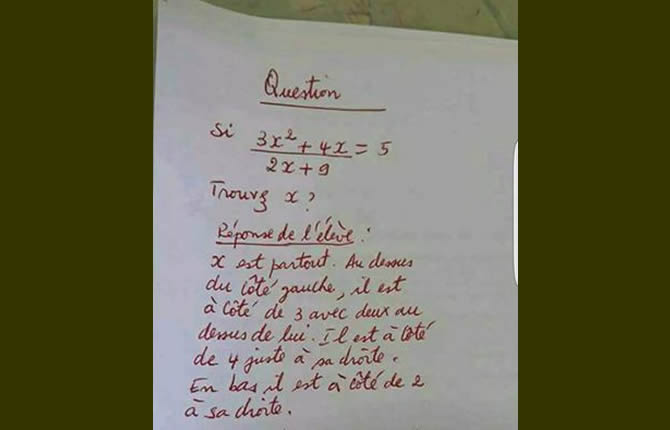 Question
Si 3x² + 4x = 5
2x + 9
Trouvez x ?
Réponse de l'élève :
x est partout. Au dessus
du côté gauche, il est
à côté de 3 avec deux au
dessus de lui. Il est à côté
de 4 juste à sa droite.
En bas il est à côté de 2
à sa droite.